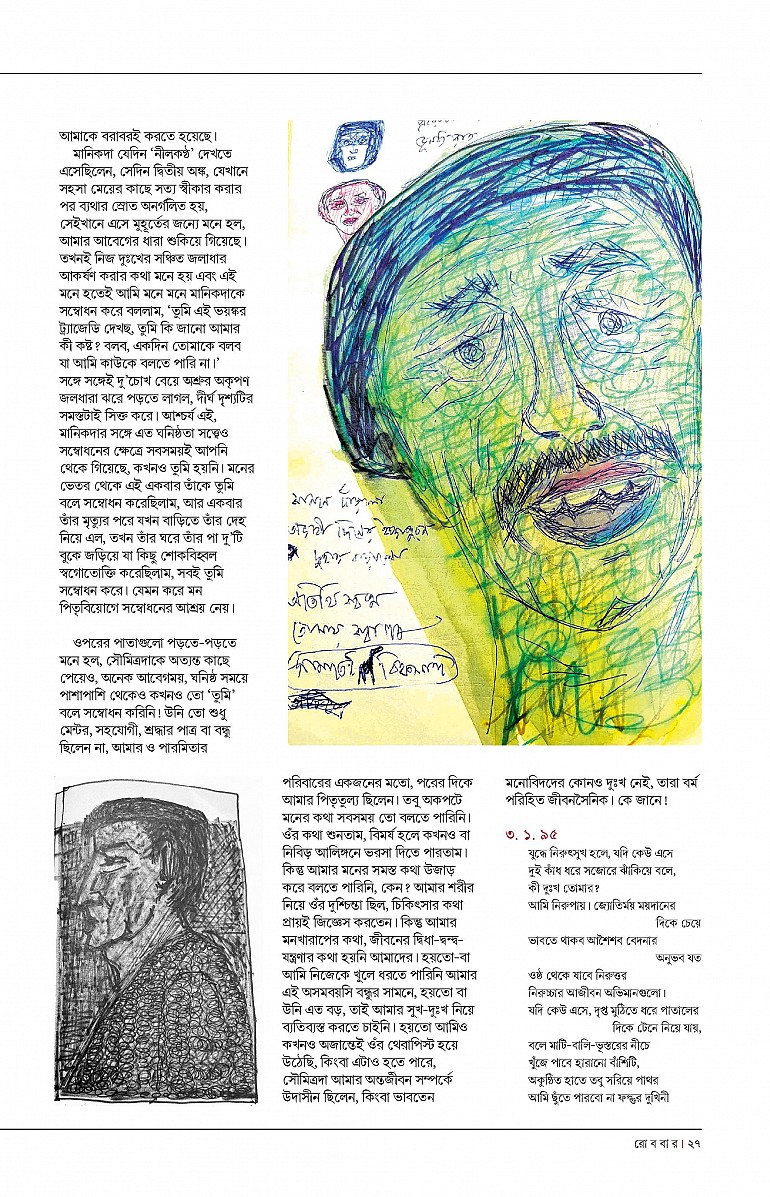 আমাকে বরাবরই করতে হয়েছে।
মানিকদা যেদিন ‘নীলকণ্ঠ’ দেখতে
এসেছিলেন, সেদিন দ্বিতীয় অঙ্ক, যেখানে
সহসা মেয়ের কাছে সত্য স্বীকার করার
পর ব্যথার স্রোত অনর্গলিত হয়,
সেইখানে এসে মুহূর্তের জন্যে মনে হল,
আমার আবেগের ধারা শুকিয়ে গিয়েছে।
তখনই নিজ দুঃখের সঞ্চিত জলাধার
আকর্ষণ করার কথা মনে হয় এবং এই
মনে হতেই আমি মনে মনে মানিকদাকে
সম্বোধন করে বললাম, ‘তুমি এই ভয়ঙ্কর
ট্র্যাজেডি দেখছ, তুমি কি জানো আমার
কী কষ্ট? বলব, একদিন তোমাকে বলব
যা আমি কাউকে বলতে পারি না।’
সঙ্গে সঙ্গেই দু’চোখ বেয়ে অশ্রুর অকৃপণ
জলধারা ঝরে পড়তে লাগল, দীর্ঘ দৃশ্যটির
সমস্তটাই সিক্ত করে। আশ্চর্য এই,
মানিকদার সঙ্গে এত ঘনিষ্ঠতা সত্ত্বেও
সম্বোধনের ক্ষেত্রে সবসময়ই আপনি
থেকে গিয়েছে, কখনও তুমি হয়নি। মনের
ভেতর থেকে এই একবার তাঁকে তুমি
বলে সম্বোধন করেছিলাম, আর একবার
তাঁর মৃত্যুর পরে যখন বাড়িতে তাঁর দেহ
নিয়ে এল, তখন তাঁর ঘরে তাঁর পা দু’টি
বুকে জড়িয়ে যা কিছু শোকবিহ্বল
স্বগোতোক্তি করেছিলাম, সবই তুমি
সম্বোধন করে। যেমন করে মন
পিতৃবিয়োগে সম্বোধনের আশ্রয় নেয়।
ওপরের পাতাগুলো পড়তে-পড়তে
মনে হল, সৌমিত্রদাকে অত্যন্ত কাছে
পেয়েও, অনেক আবেগময়, ঘনিষ্ঠ সময়ে
পাশাপাশি থেকেও কখনও তো ‘তুমি’
বলে সম্বোধন করিনি! উনি তো শুধু
মেন্টর, সহযোগী, শ্রদ্ধার পাত্র বা বন্ধু
ছিলেন না, আমার ও পারমিতার
পরিবারের একজনের মতো, পরের দিকে
আমার পিতৃতুল্য ছিলেন। তবু অকপটে
মনের কথা সবসময় তো বলতে পারিনি।
ওঁর কথা শুনতাম, বিমর্ষ হলে কখনও বা
নিবিড় আলিঙ্গনে ভরসা দিতে পারতাম।
কিন্তু আমার মনের সমস্ত কথা উজাড়
করে বলতে পারিনি, কেন? আমার শরীর
নিয়ে ওঁর দুশ্চিন্তা ছিল, চিকিৎসার কথা
প্রায়ই জিজ্ঞেস করতেন। কিন্তু আমার
মনখারাপের কথা, জীবনের দ্বিধা-দ্বন্দ্ব-
যন্ত্রণার কথা হয়নি আমাদের। হয়তো-বা
আমি নিজেকে খুলে ধরতে পারিনি আমার
এই অসমবয়সি বন্ধুর সামনে, হয়তো বা
উনি এত বড়, তাই আমার সুখ-দুঃখ নিয়ে
ব্যতিব্যস্ত করতে চাইনি। হয়তো আমিও
কখনও অজান্তেই ওঁর থেরাপিস্ট হয়ে
উঠেছি, কিংবা এটাও হতে পারে,
সৌমিত্রদা আমার অন্তর্জীবন সম্পর্কে
উদাসীন ছিলেন, কিংবা ভাবতেন
মনোবিদদের কোনও দুঃখ নেই, তারা বর্ম
পরিহিত জীবনসৈনিক। কে জানে!
৩. ১. ৯৫
যুদ্ধে নিরুৎসুখ হলে, যদি কেউ এসে
দুই কাঁধ ধরে সজোরে ঝাঁকিয়ে বলে,
কী দুঃখ তোমার?
আমি নিরুপায়। জ্যোতির্ময় ময়দানের
দিকে চেয়ে
ভাবতে থাকব আশৈশব বেদনার
অনুভব যত
ওষ্ঠ থেকে যাবে নিরুত্তর
নিরুচ্চার আজীবন অভিমানগুলো।
যদি কেউ এসে, দৃপ্ত মুঠিতে ধরে পাতালের
দিকে টেনে নিয়ে যায়,
বলে মাটি-বালি-ভূস্তরের নীচে
খুঁজে পাবে হারানো বাঁশিটি,
অকুণ্ঠিত হাতে তবু সরিয়ে পাথর
আমি ছুঁতে পারবো না ফল্গুর দুখিনী
রোববার। ২৭